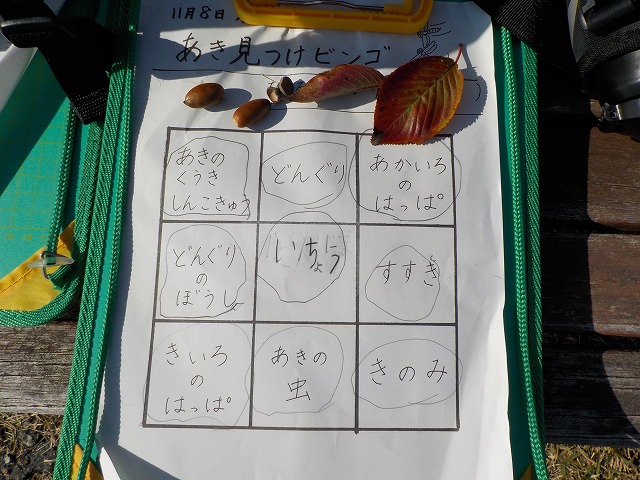 11月8日
あき見つけビンゴ
あきの
くうき
しんこきゅう
どんぐり
あかいろ
の
はっぱ
どんぐり
の
ぼうし
いちょう
すすき
きいろ
の
はっぱ
あきの
虫
きのみ